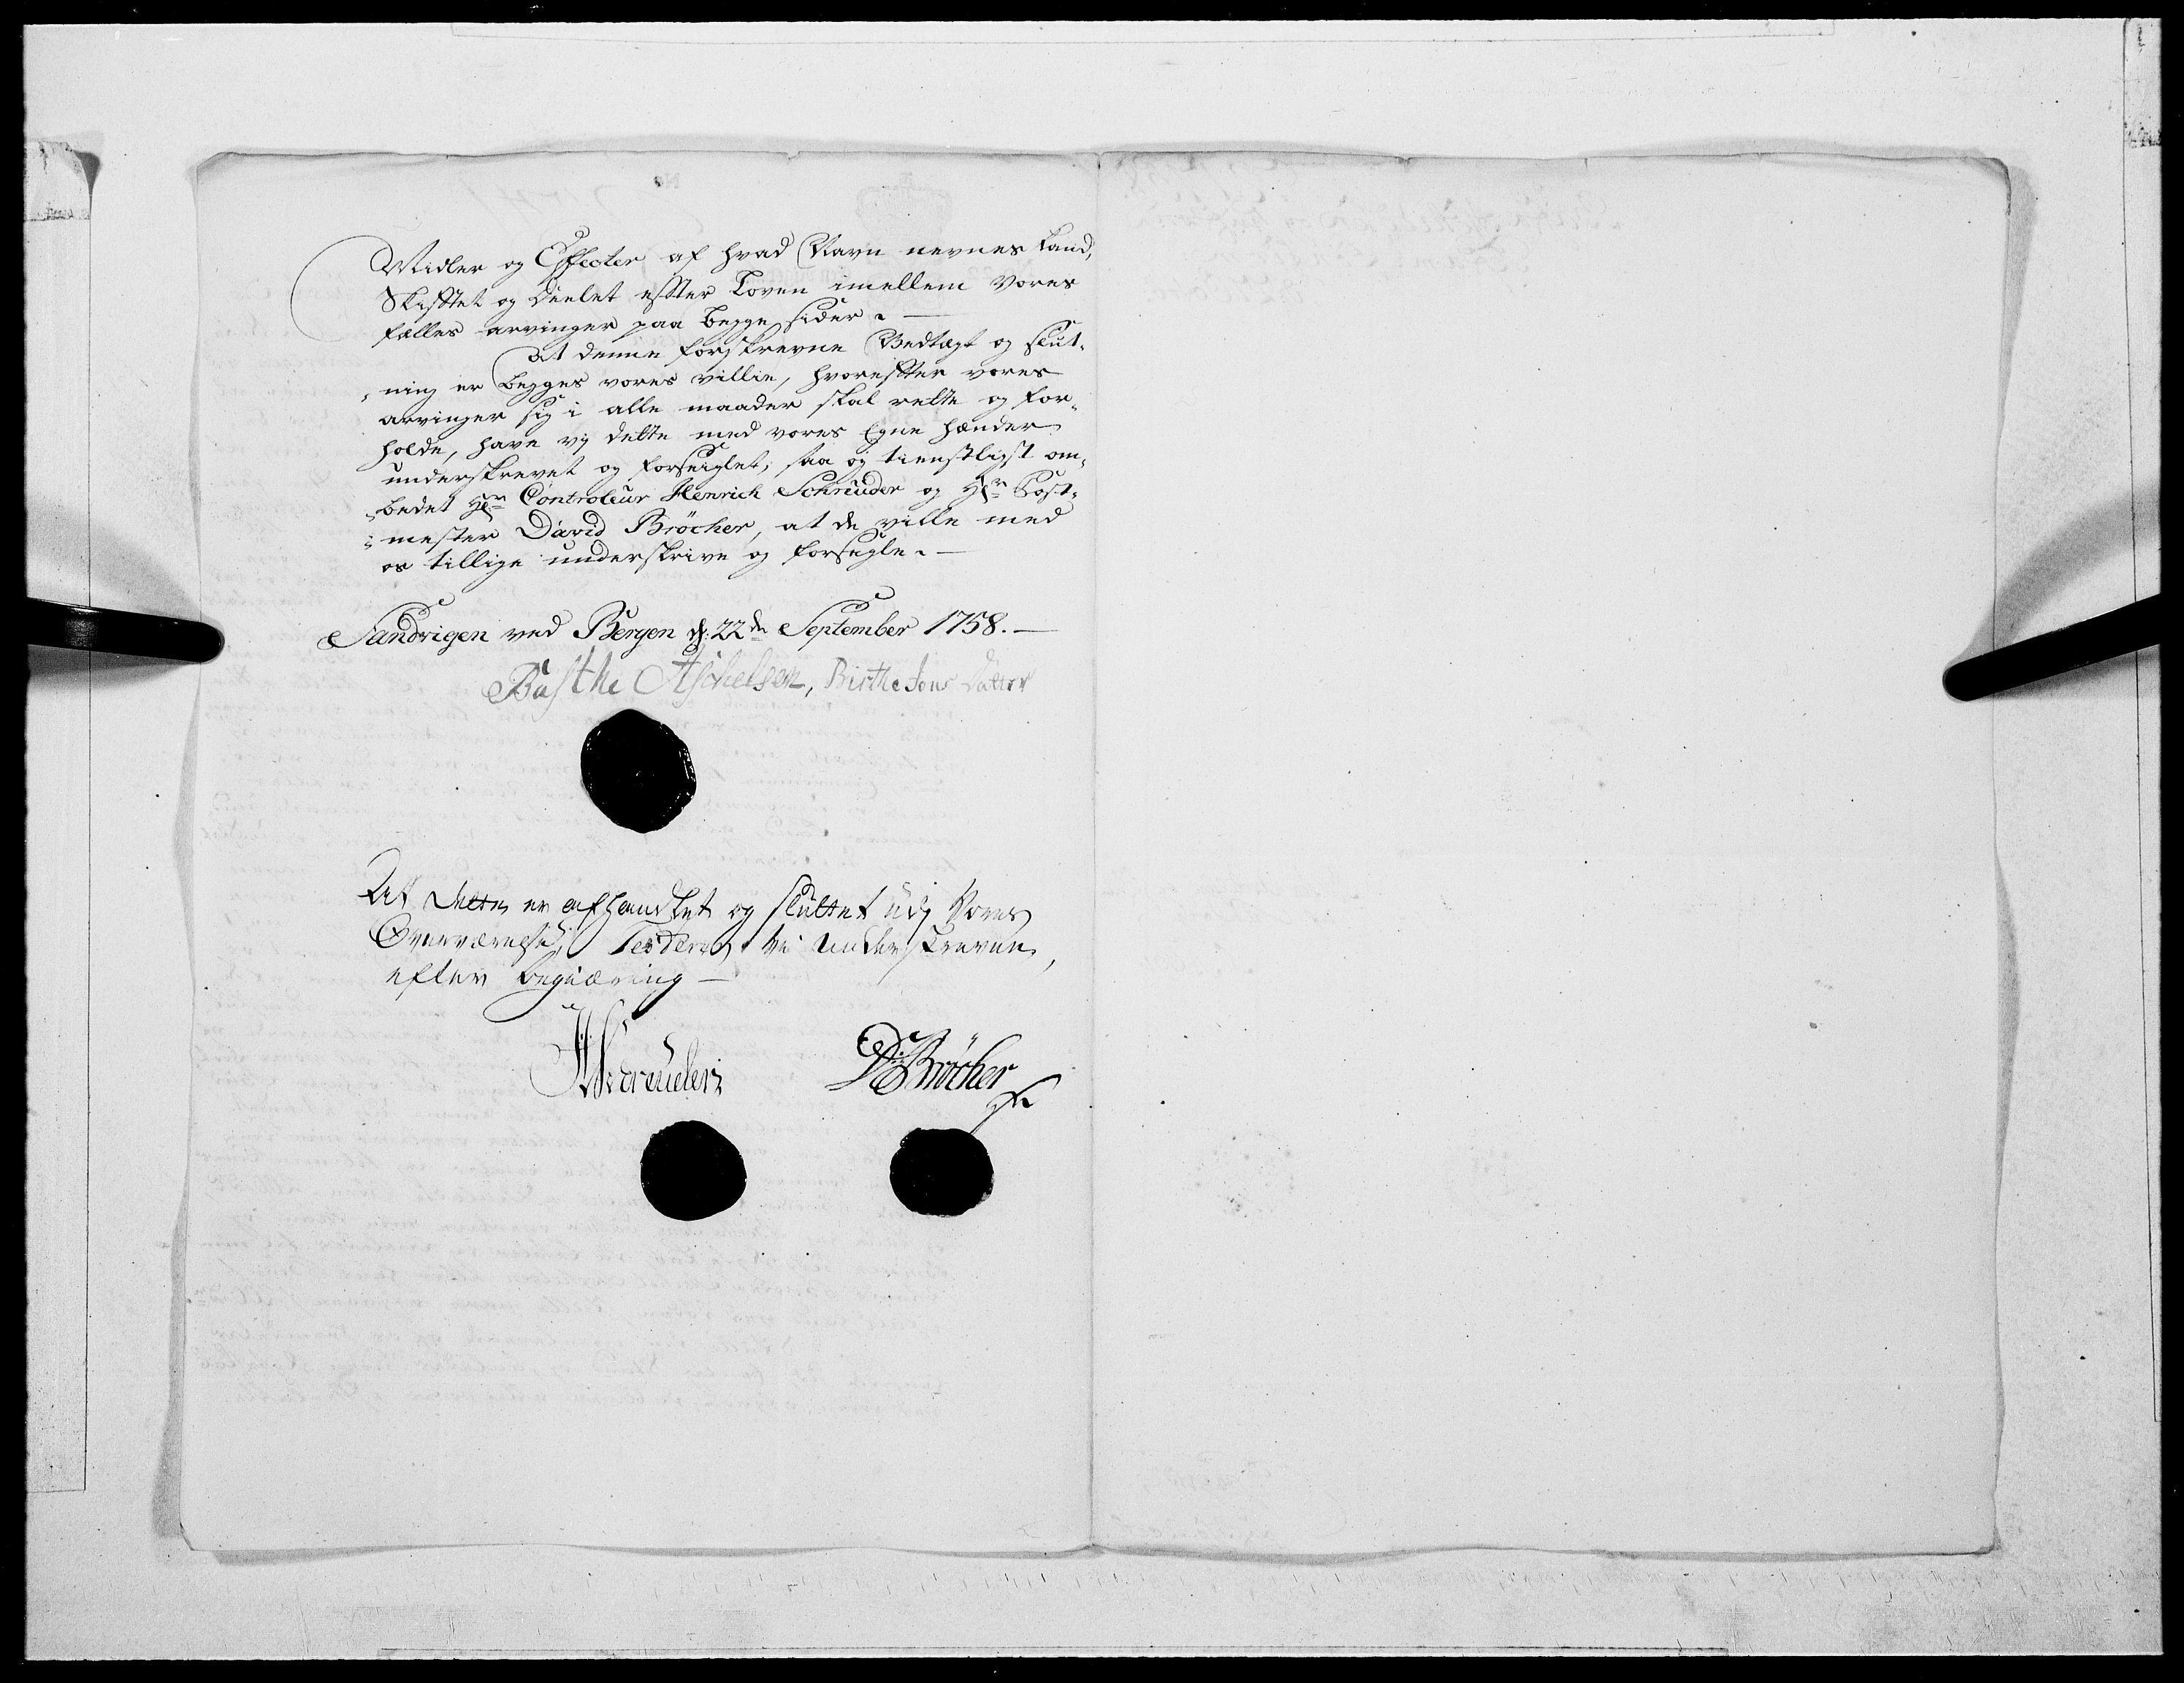 Midler og Effecter af hvad Navn nevnes kand,
Skifftet og deelet effter Loven imellem Vores
fælles arvinger paa begge sider. —
At denne forskrevne Vedtægt og slut-
ning er begges vores villie, hvoreffter vores
arvinger sig i alle maader skal rette og for-
holde, have vj dette med vores Egne hænder
underskrevet og forseiglet; saa og tienstligst om-
bedet Hr. Controleur Henrich Schreuder og Hr. Post-
mester David Bröcher, at de ville med
os tillige underskrive og forsegle. —
Sandvigen ved Bergen d: 22de September 1758. —
Aschelsen, Birthe Jons Datter
At dette er afhandlet og sluttet udj Vores
Overværelse, Testerer vi underskrevne,
efter begiæring —
HSchreuder
DBröcher